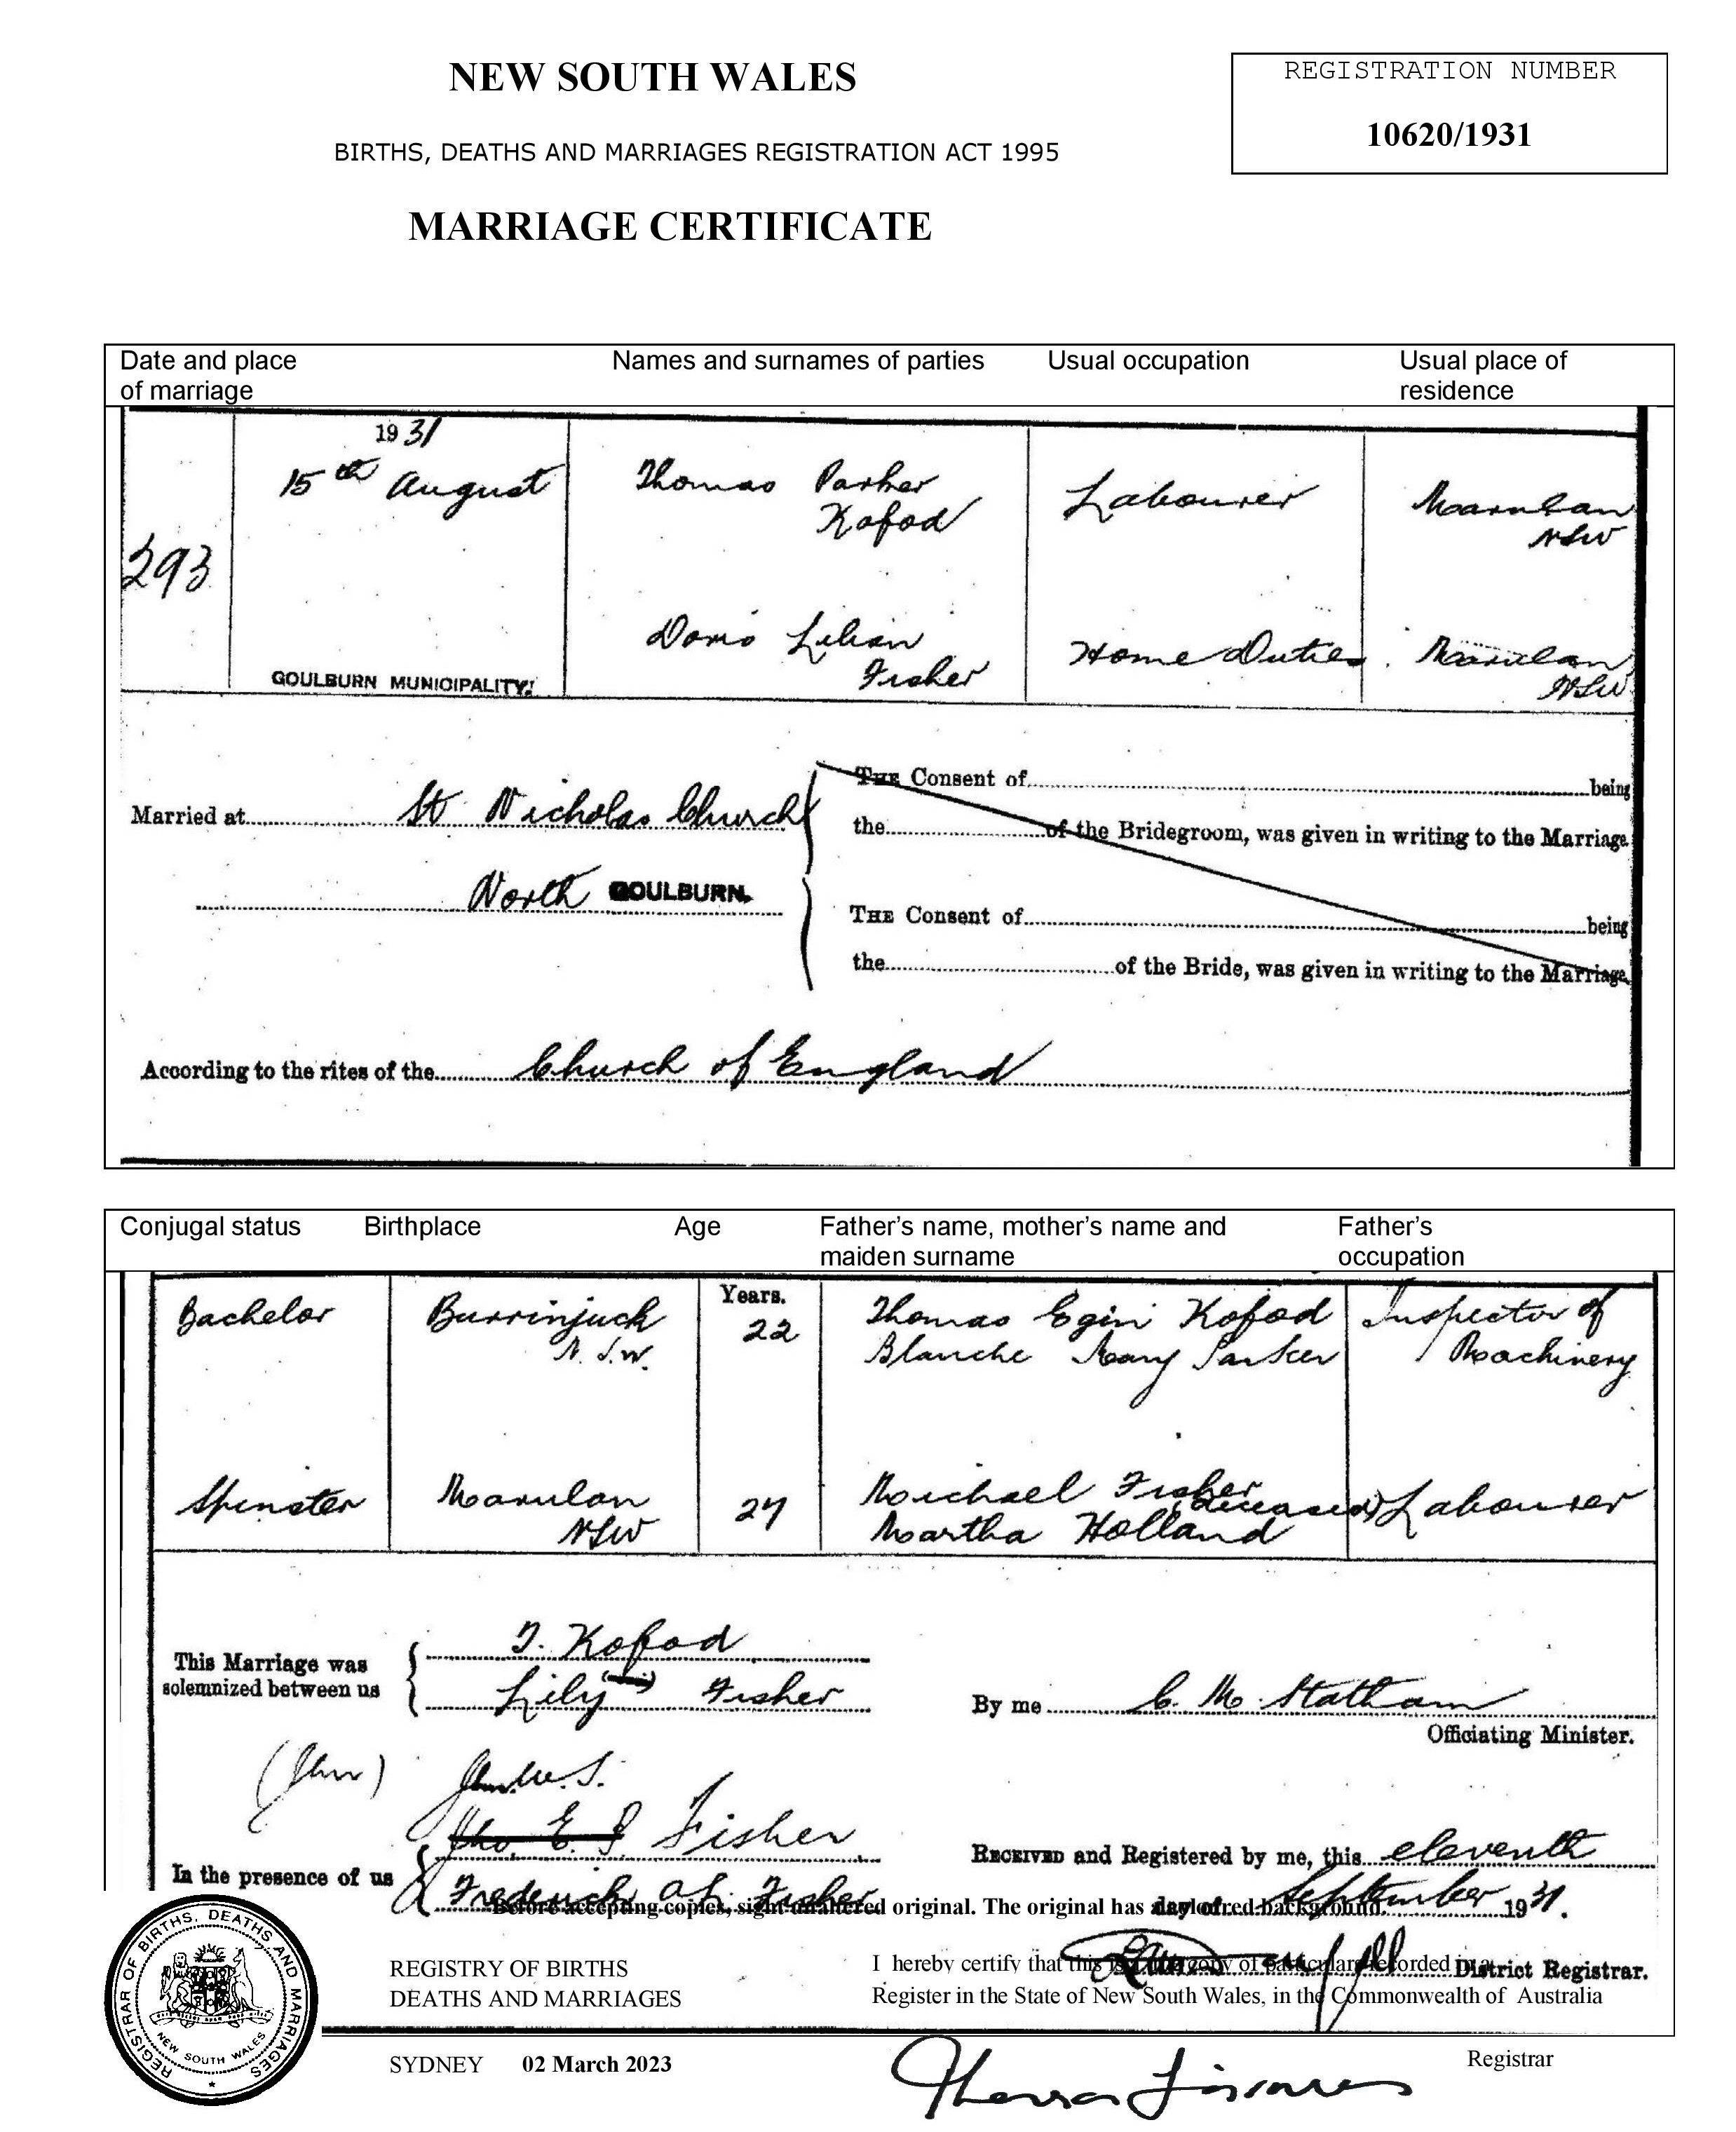 NEW SOUTH WALES
REGISTRATION NUMBER
10620/1931
BIRTHS, DEATHS AND MARRIAGES REGISTRATION ACT 1995
MARRIAGE CERTIFICATE
Date and place of marriage
Names and surnames of parties
Usual occupation
Usual place of residence
293
1931
15th August
GOULBURN MUNICIPALITY.
Thomas Parker
Kofod
Labourer
Marulan
NSW
Doris Lilian
Fisher
Home Duties
Marulan
NSW
Married at St Nicholas Church
North GOULBURN.
THE Consent of being
the of the Bridegroom, was given in writing to the Marriage
THE Consent of being
the of the Bride, was given in writing to the Marriage
According to the rites of the Church of England
Conjugal status
Birthplace
Age
Father's name, mother's name and maiden surname
Father's occupation
Bachelor
Burrinjuck
N.S.W.
Years.
22
Thomas Egin Kofod
Blanche Mary Parker
Inspector of
Machinery
Spinster
Marulan
NSW
27
Michael Fisher
(deceased)
Martha Holland
Labourer
This Marriage was solemnized between us
T. Kofod
Lily Fisher
By me C. M. Statham
Officiating Minister.
(John)
Fisher
In the presence of us
Frederick Fisher
RECEIVED and Registered by me, this eleventh
day of September 1931.
District Registrar.
Before accepting copies, sight unaltered original. The original has a coloured background.
REGISTRY OF BIRTHS
DEATHS AND MARRIAGES
I hereby certify that this is a true copy of particulars recorded in a
Register in the State of New South Wales, in the Commonwealth of Australia
REGISTRAR OF BIRTHS, DEATHS AND MARRIAGES
NEW SOUTH WALES
SYDNEY 02 March 2023
Registrar